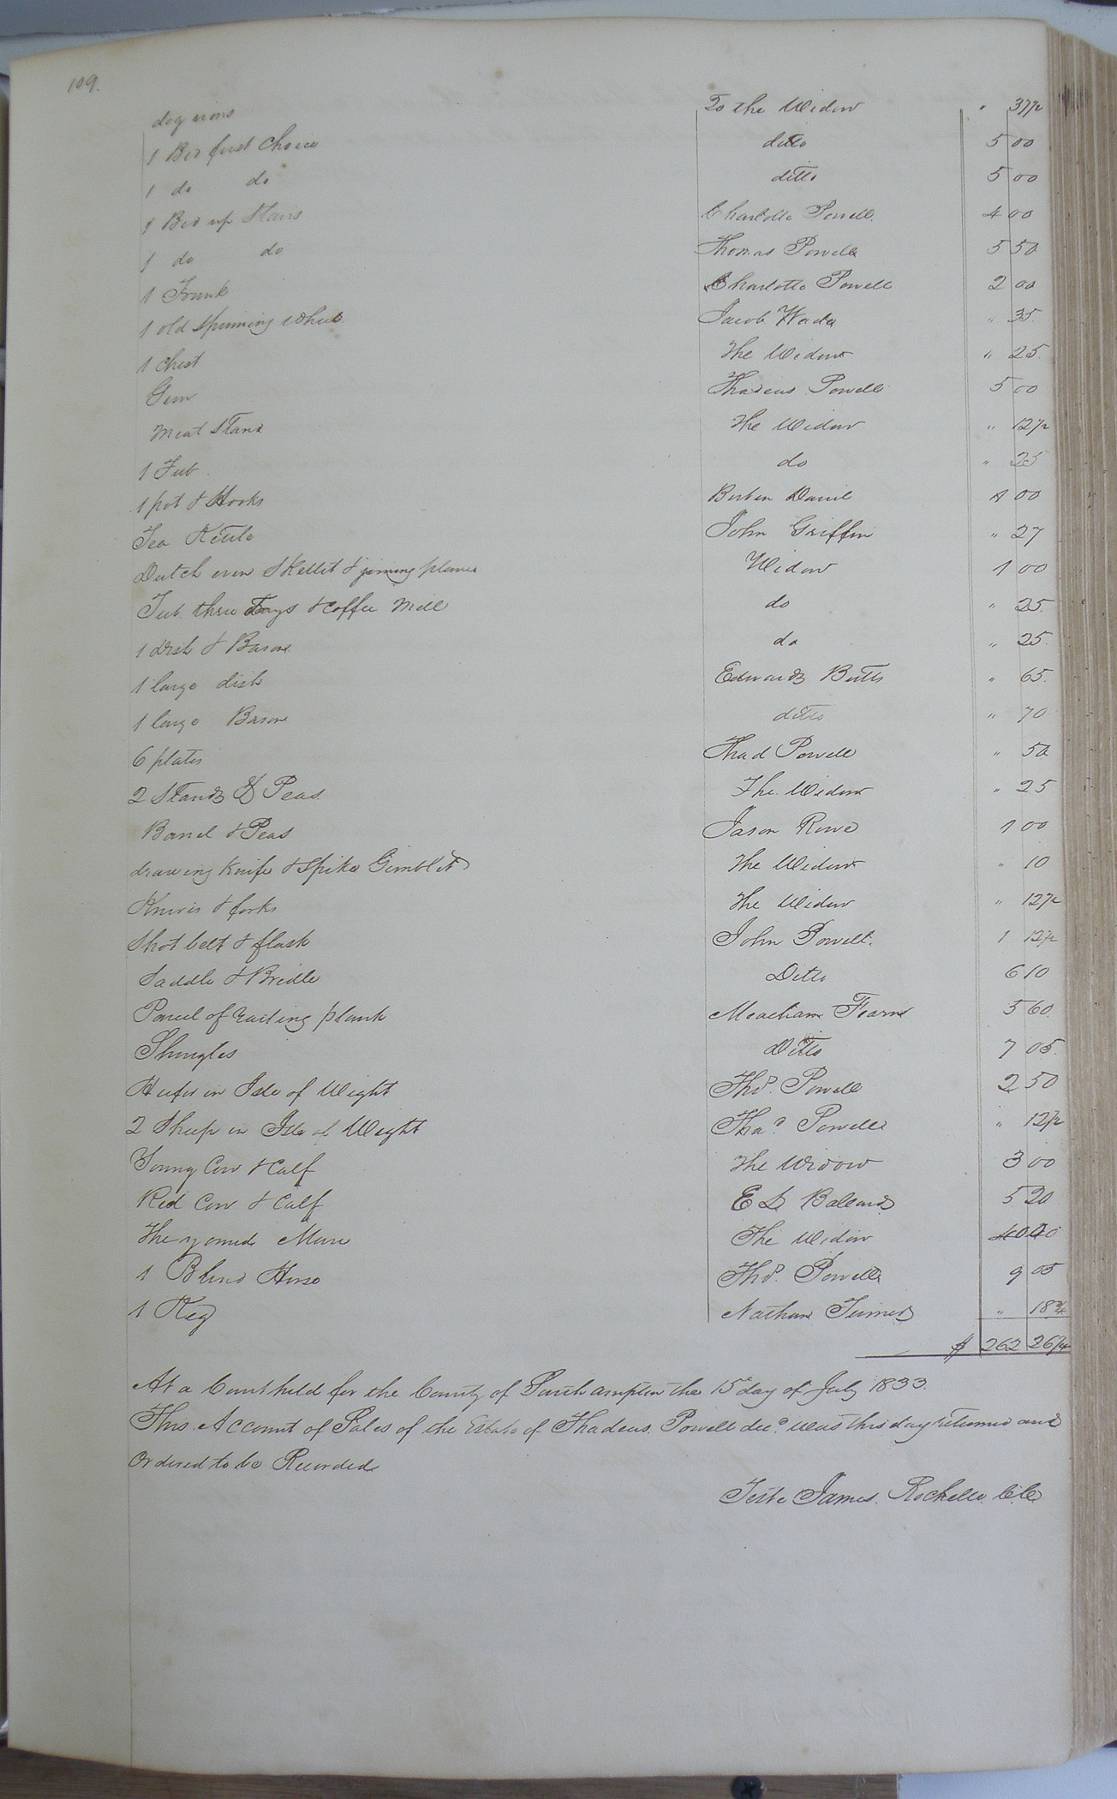 109.
dog irons To the Widow " 37½
1 Bed first Choice ditto 5 00
1 do do ditto 5 00
1 Bed up Stairs Charlotte Powell. 4 00
1 do do Thomas Powell 5 50
1 Trunk Charlotte Powell 2 00
1 old Spinning Wheel Jacob Wade " 35
1 chest The Widow " 25
Gun Thadeus Powell 5 00
Meat Stand The Widow " 12½
1 Tub do " 25
1 pot & Hooks Daniel 00
Tea Kettle John Griffin " 27
Dutch oven Skellet & joining planes Widow 1 00
Tub three Trays & Coffee Mill do " 25
1 dish & Bason do " 25
1 large dish Edwards Butts " 65
1 large Bason ditto " 70
6 plates Thad Powell " 50
2 Stands & Peas The Widow " 25
Barrel & Peas Jason Rowe 1 00
drawing Knife & Spike Gimblet The Widow " 10
Knives & forks The Widow " 12½
Shot belt & flask John Powell. 1 12½
Saddle & Bridle Ditto 6 10
Parcel of plank Meacham 5 60
Shingles Ditto 7 05
Heifer in Isle of Wight Thd. Powell 2 50
2 Sheep in Isle of Wight Thad Powell " 12½
Young Cow & Calf The Widow 3 00
Red Cow & Calf E D Ballard 5 20
The Mare The Widow 40 00
1 Blind Horse Thd. Powell 9 05
1 Keg Nathan Turner " 18¾
$ 262 26¼
At a Court held for the County of Southampton the 15th day of July 1833.
This Account of Sales of the Estate of Thadeus Powell decd. was this day returned and
Ordered to be Recorded
Teste James Rochelle C.C.